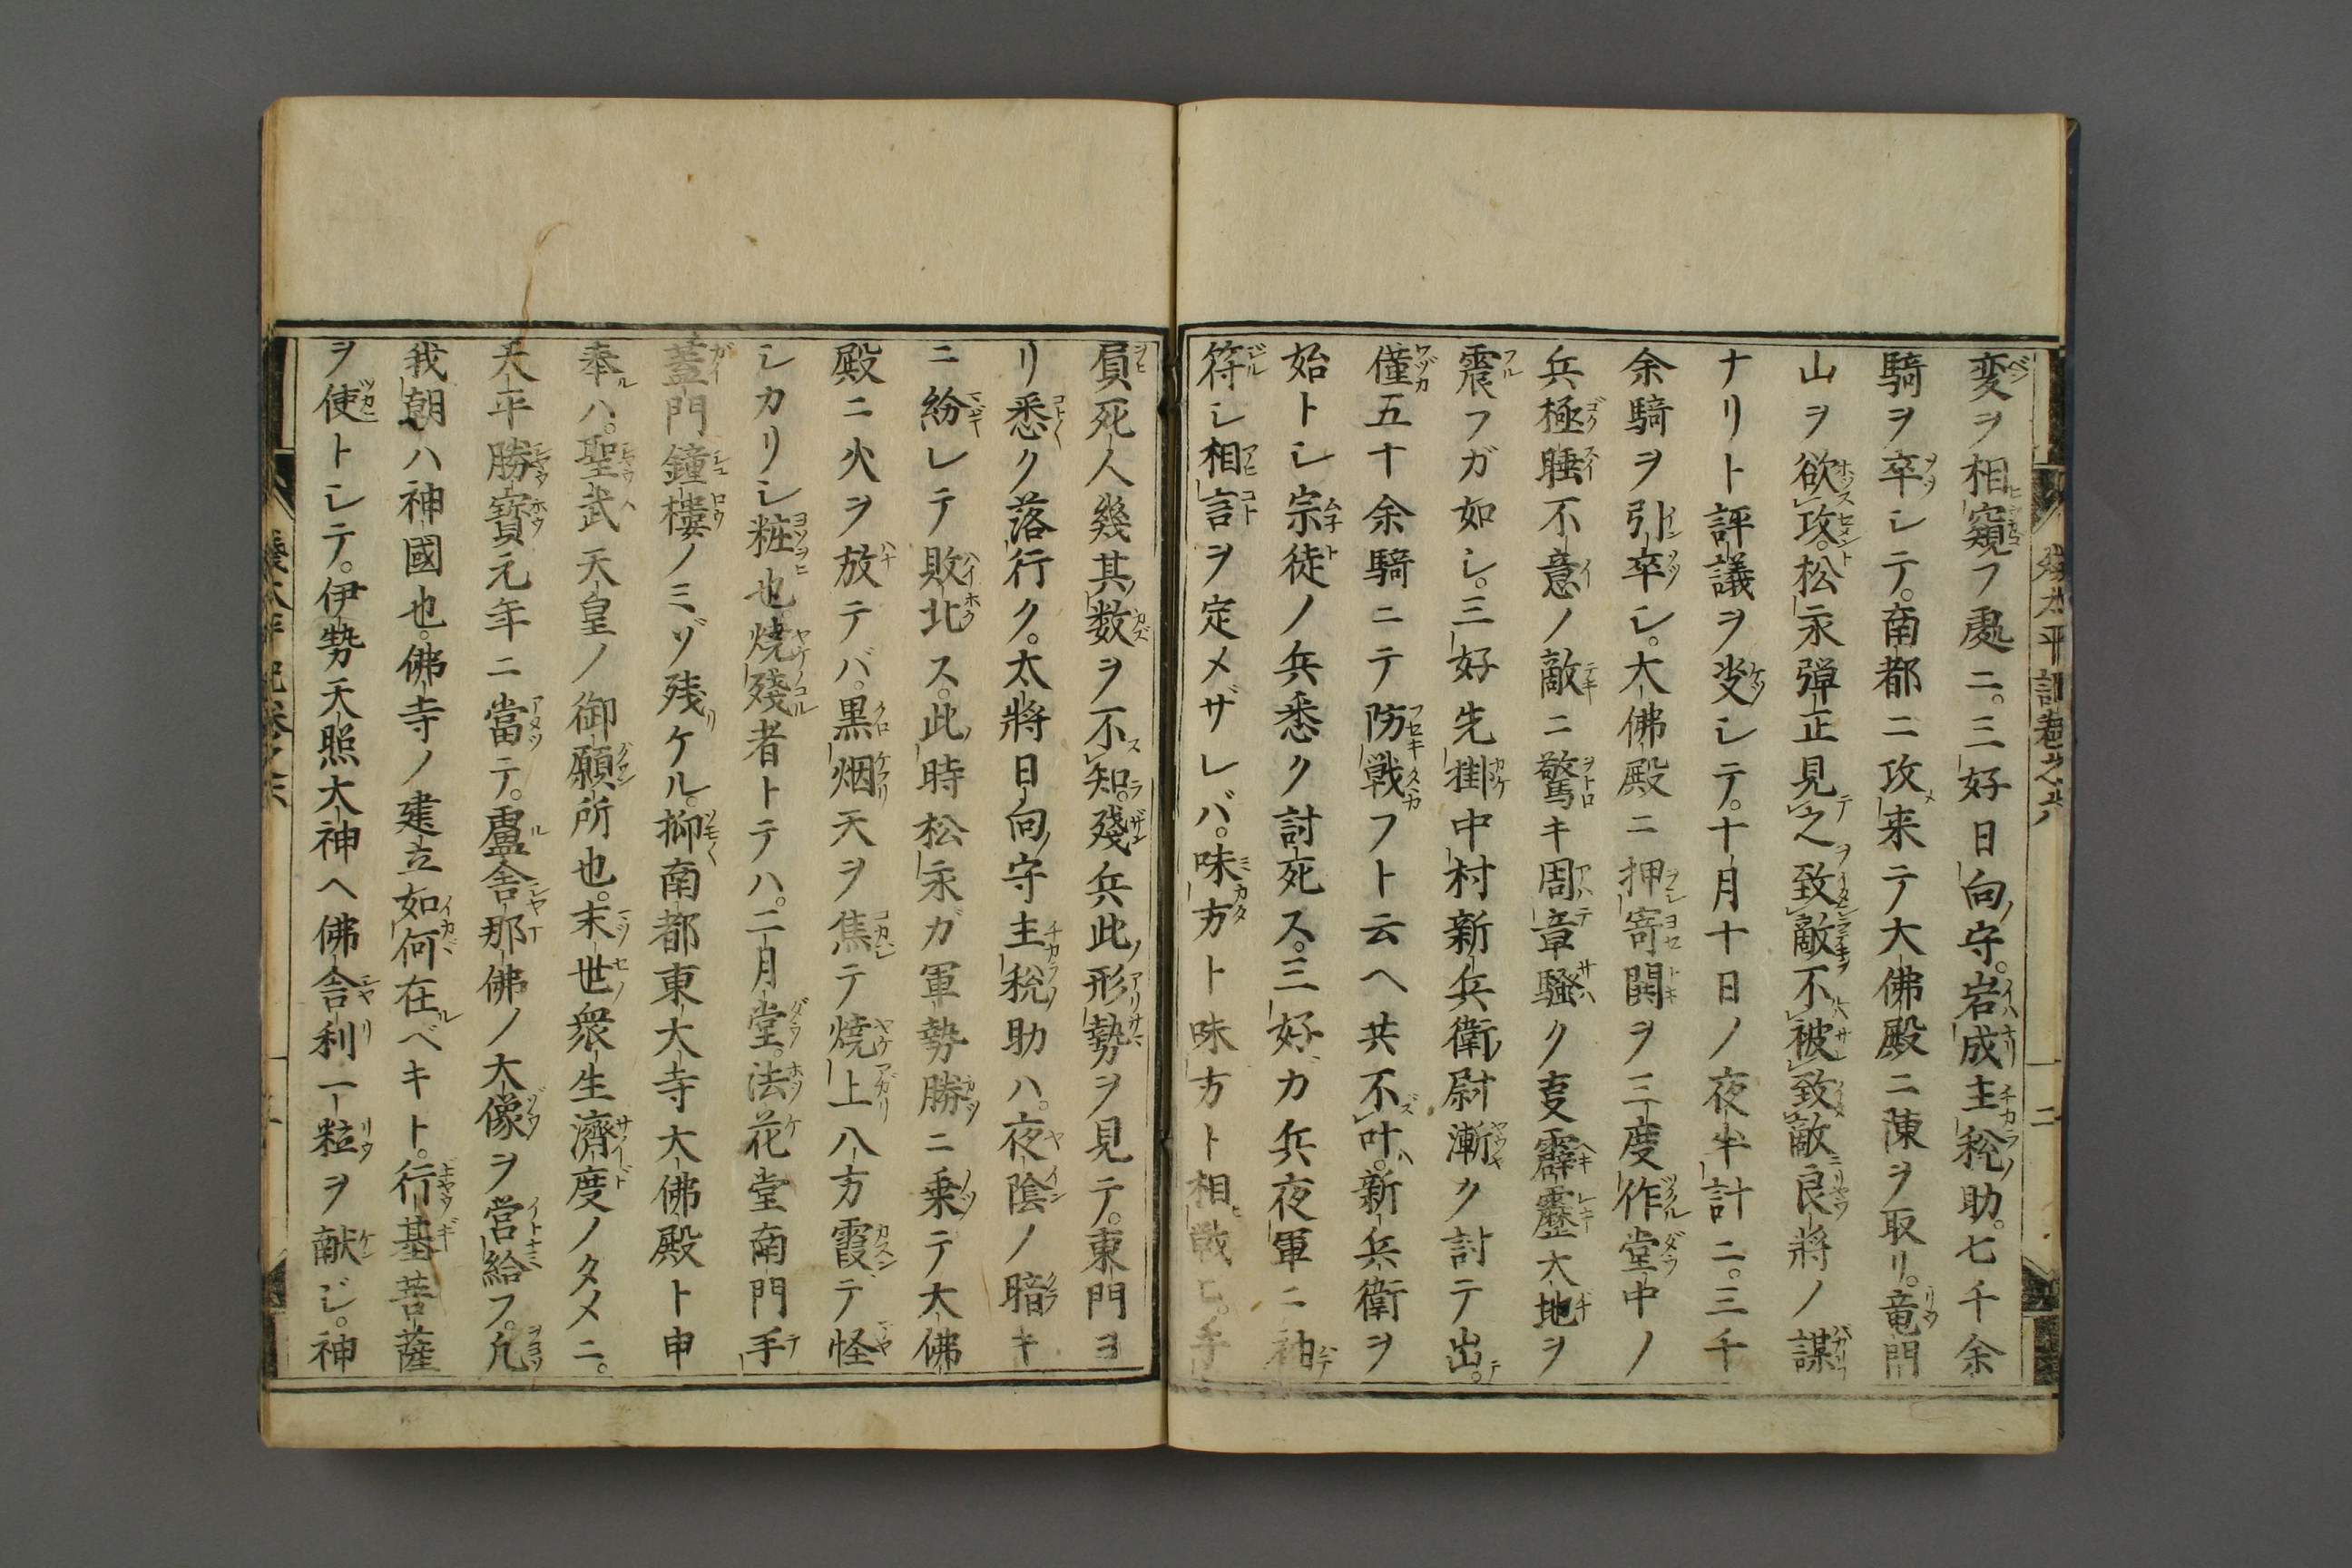 変ヲ相窺フ處ニ。三好日向ノ守。岩成主税助。七千余
騎ヲ卒シテ。南都ニ攻来テ大佛殿ニ陳ヲ取リ。竜門
山ヲ欲攻。松永弾正見之致敵不被致敵良將ノ謀
ナリト評議ヲ㪅シテ。十月十日ノ夜半計ニ。三千
余騎ヲ引卒シ。大佛殿ニ押寄鬨ヲ三度作堂中ノ
兵極睡不意ノ敵ニ驚キ周章騒ク叓霹靂大地ヲ
震フガ如シ。三好先掛中村新兵衛尉漸ク討テ出。
僅五十余騎ニテ防戦フト云ヘ共不叶。新兵衛ヲ
始トシ宗徒ノ兵悉ク討死ス。三好ガ兵夜軍ニ袖
符シ相言ヲ定メザレバ。味方ト味方ト相戦ヒ。手
負死人幾其数ヲ不知。殘兵此形勢ヲ見テ。東門ヨ
リ悉ク落行ク。大將日向ノ守主税助ハ。夜陰ノ暗キ
ニ紛レテ敗北ス。此時松永ガ軍勢勝ニ乗テ大佛
殿ニ火ヲ放テバ。黒烟天ヲ焦テ焼上八方霞デ怪
シカリシ粧也焼殘者トテハ。二月堂。法花堂南門手
蓋門鐘樓ノミゾ残リケル。抑南都東大寺大佛殿ト申
奉ルハ。聖武天皇ノ御願所也。末世ノ衆生濟度ノタメニ。
天平勝寳元年ニ當テ。盧舎那佛ノ大像ヲ営給フ。凡
我朝ハ神國也。佛寺ノ建立如何在ベキト。行基菩薩
ヲ使トシテ。伊勢天照大神ヘ佛舎利一粒ヲ献ジ。神